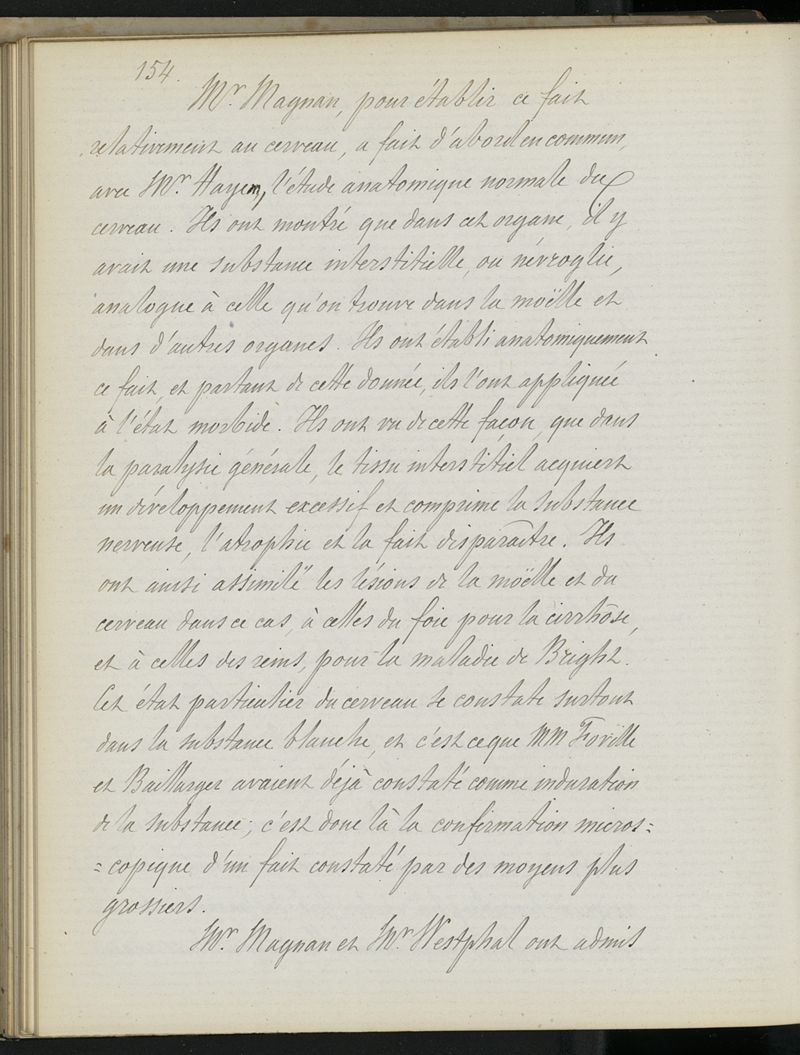 154.
Mr. Magnan, pour établir ce fait
relativement au cerveau, a fait d'abord en commun,
avec Mr. Hayem, l'étude anatomique normale du
cerveau. Ils ont montré que dans cet organe, il y
avait une substance interstitielle, ou névroglie,
analogue à celle qu'on trouve dans la moëlle et
dans d'autres organes. Ils ont établi anatomiquement
ce fait, et partant de cette donnée, ils l'ont appliquée
à l'état morbide. Ils ont vu de cette façon, que dans
la paralysie générale, le tissu interstitiel acquiert
un développement excessif et comprime la substance
nerveuse, l'atrophie et la fait disparaître. Ils
ont ainsi assimilé les lésions de la moëlle et du
cerveau dans ce cas, à celles du foie pour la cirrhose,
et à celles des reins, pour la maladie de Bright.
Cet état particulier du cerveau se constate surtout
dans la substance blanche, et c'est ce que MM Foville
et Baillarger avaient déjà constaté comme induration
de la substance; c'est donc là la confirmation micros=
=copique d'un fait constaté par des moyens plus
grossiers.
Mr. Magnan et Mr. Westphal ont admis